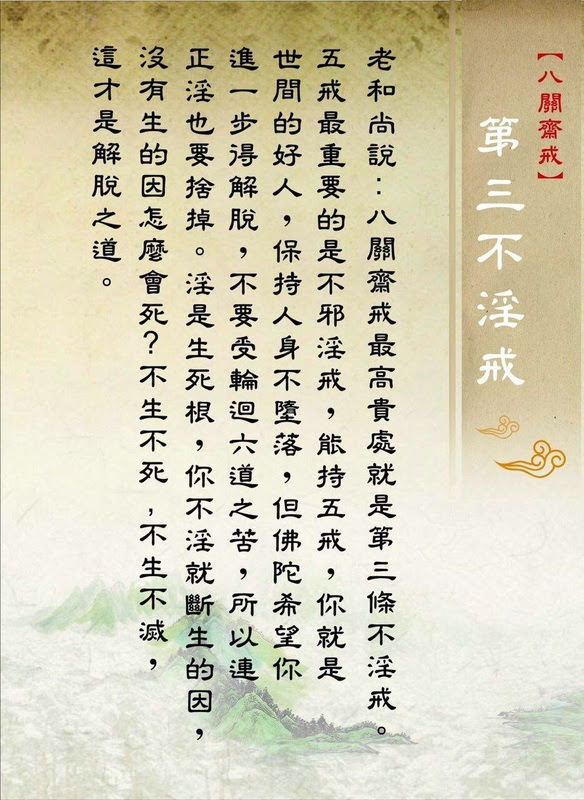 【八關齋戒】
第三不淫戒
老和尚說：八關齋戒最高貴處就是第三條不淫戒。
五戒最重要的是不邪淫戒，能持五戒，你就是
世間的好人，保持人身不墮落，但佛陀希望你
進一步得解脫，不要受輪迴六道之苦，所以連
正淫也要捨掉。淫是生死根，你不淫就斷生的因，
沒有生的因怎麼會死？不生不死，不生不滅，
這才是解脫之道。